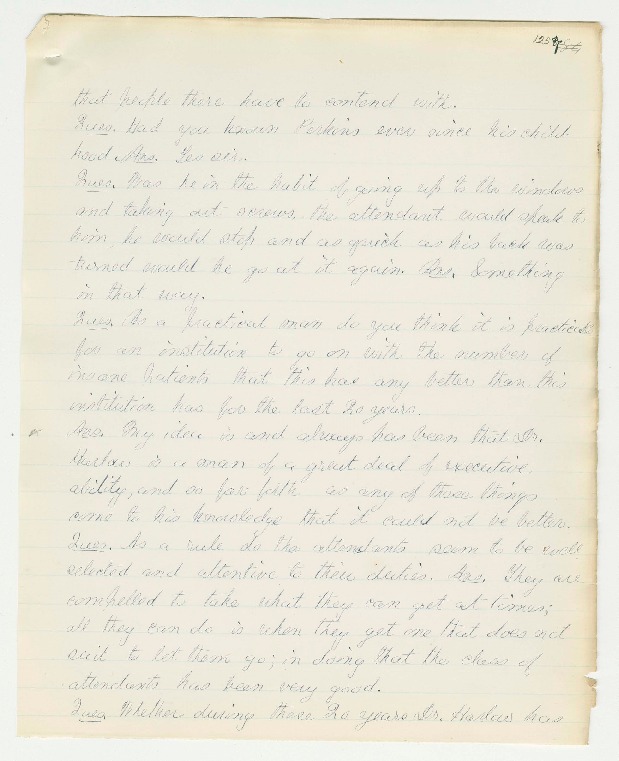 125
that people there have to contend with.
Ques. Had you known Perkins ever since his child
hood Ans. Yes sir.
Ques. Was he in the habit of going up to the windows
and taking out screws, the attendant would speak to
him, he would stop and as quick as his back was
turned would he go at it again. Ans. Something
in that way.
Ques. As a practical man do you think it is practical
for an institution to go on with the number of
insane patients that this has any better than this
institution has for the last 20 years.
Ans. My idea is and always has been that Dr.
Harlow is a man of a great deal of executive
ability, and so far forth as any of those things
come to his knowledge that it could not be better.
Ques. As a rule do the attendants seem to be well
selected and attentive to their duties. Ans. They are
compelled to take what they can get at times;
all they can do is when they get one that does not
suit to let them go; in doing that the class of
attendants has been very good.
Ques. Whether during those 20 years Dr. Harlow has